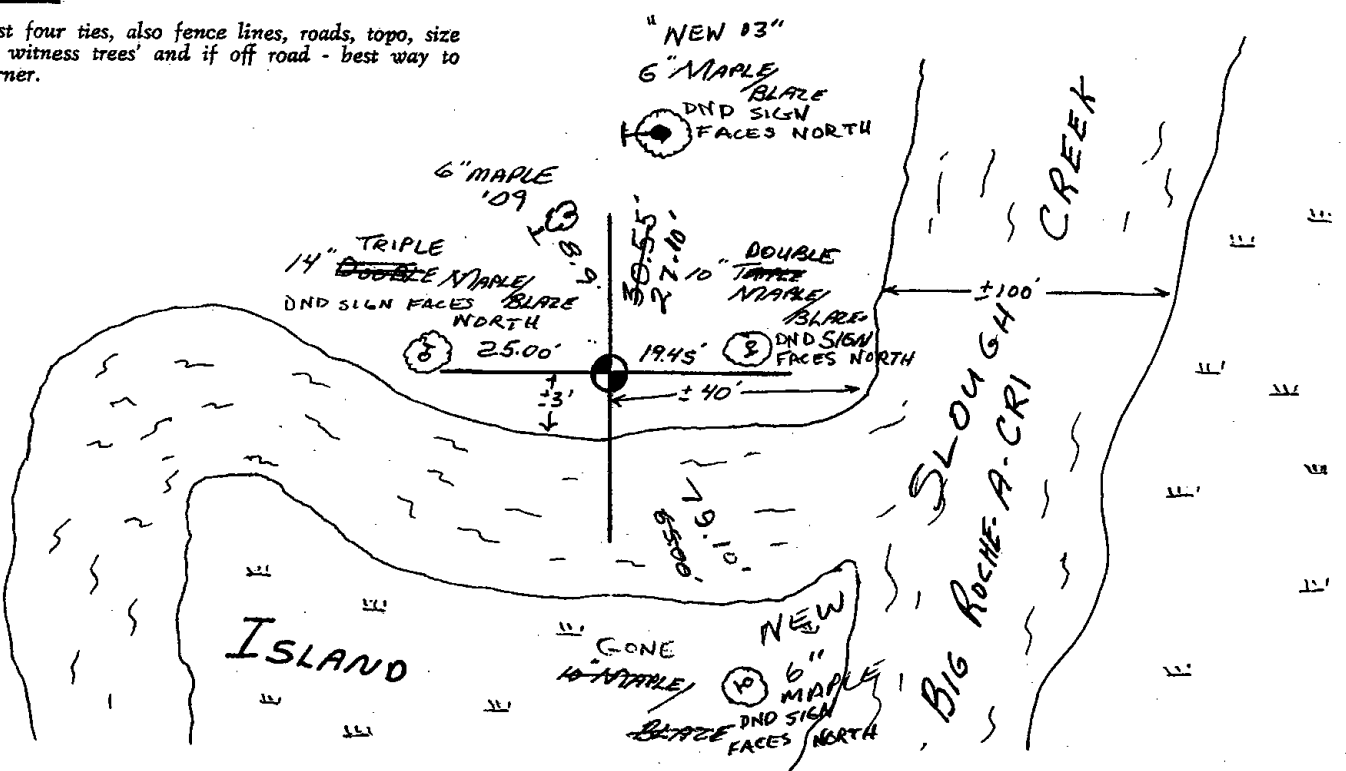 st four ties, also fence lines, roads, topo, size
witness trees' and if off road - best way to
rner.
"NEW 03"
6" MAPLE/
BLAZE
DND SIGN
FACES NORTH
6" MAPLE
'09
8.9'
30.55'
27.10'
TRIPLE
14" DOUBLE MAPLE/
DND SIGN FACES BLAZE
NORTH
25.00'
DOUBLE
10" TRIPLE
MAPLE/
BLAZE
DND SIGN
FACES NORTH
19.45'
±3'
±40'
±100'
SLOUGH
BIG ROCHE-A-CRI CREEK
ISLAND
GONE
10" MAPLE/
BLAZE
NEW
6"
MAPLE
DND SIGN
FACES NORTH